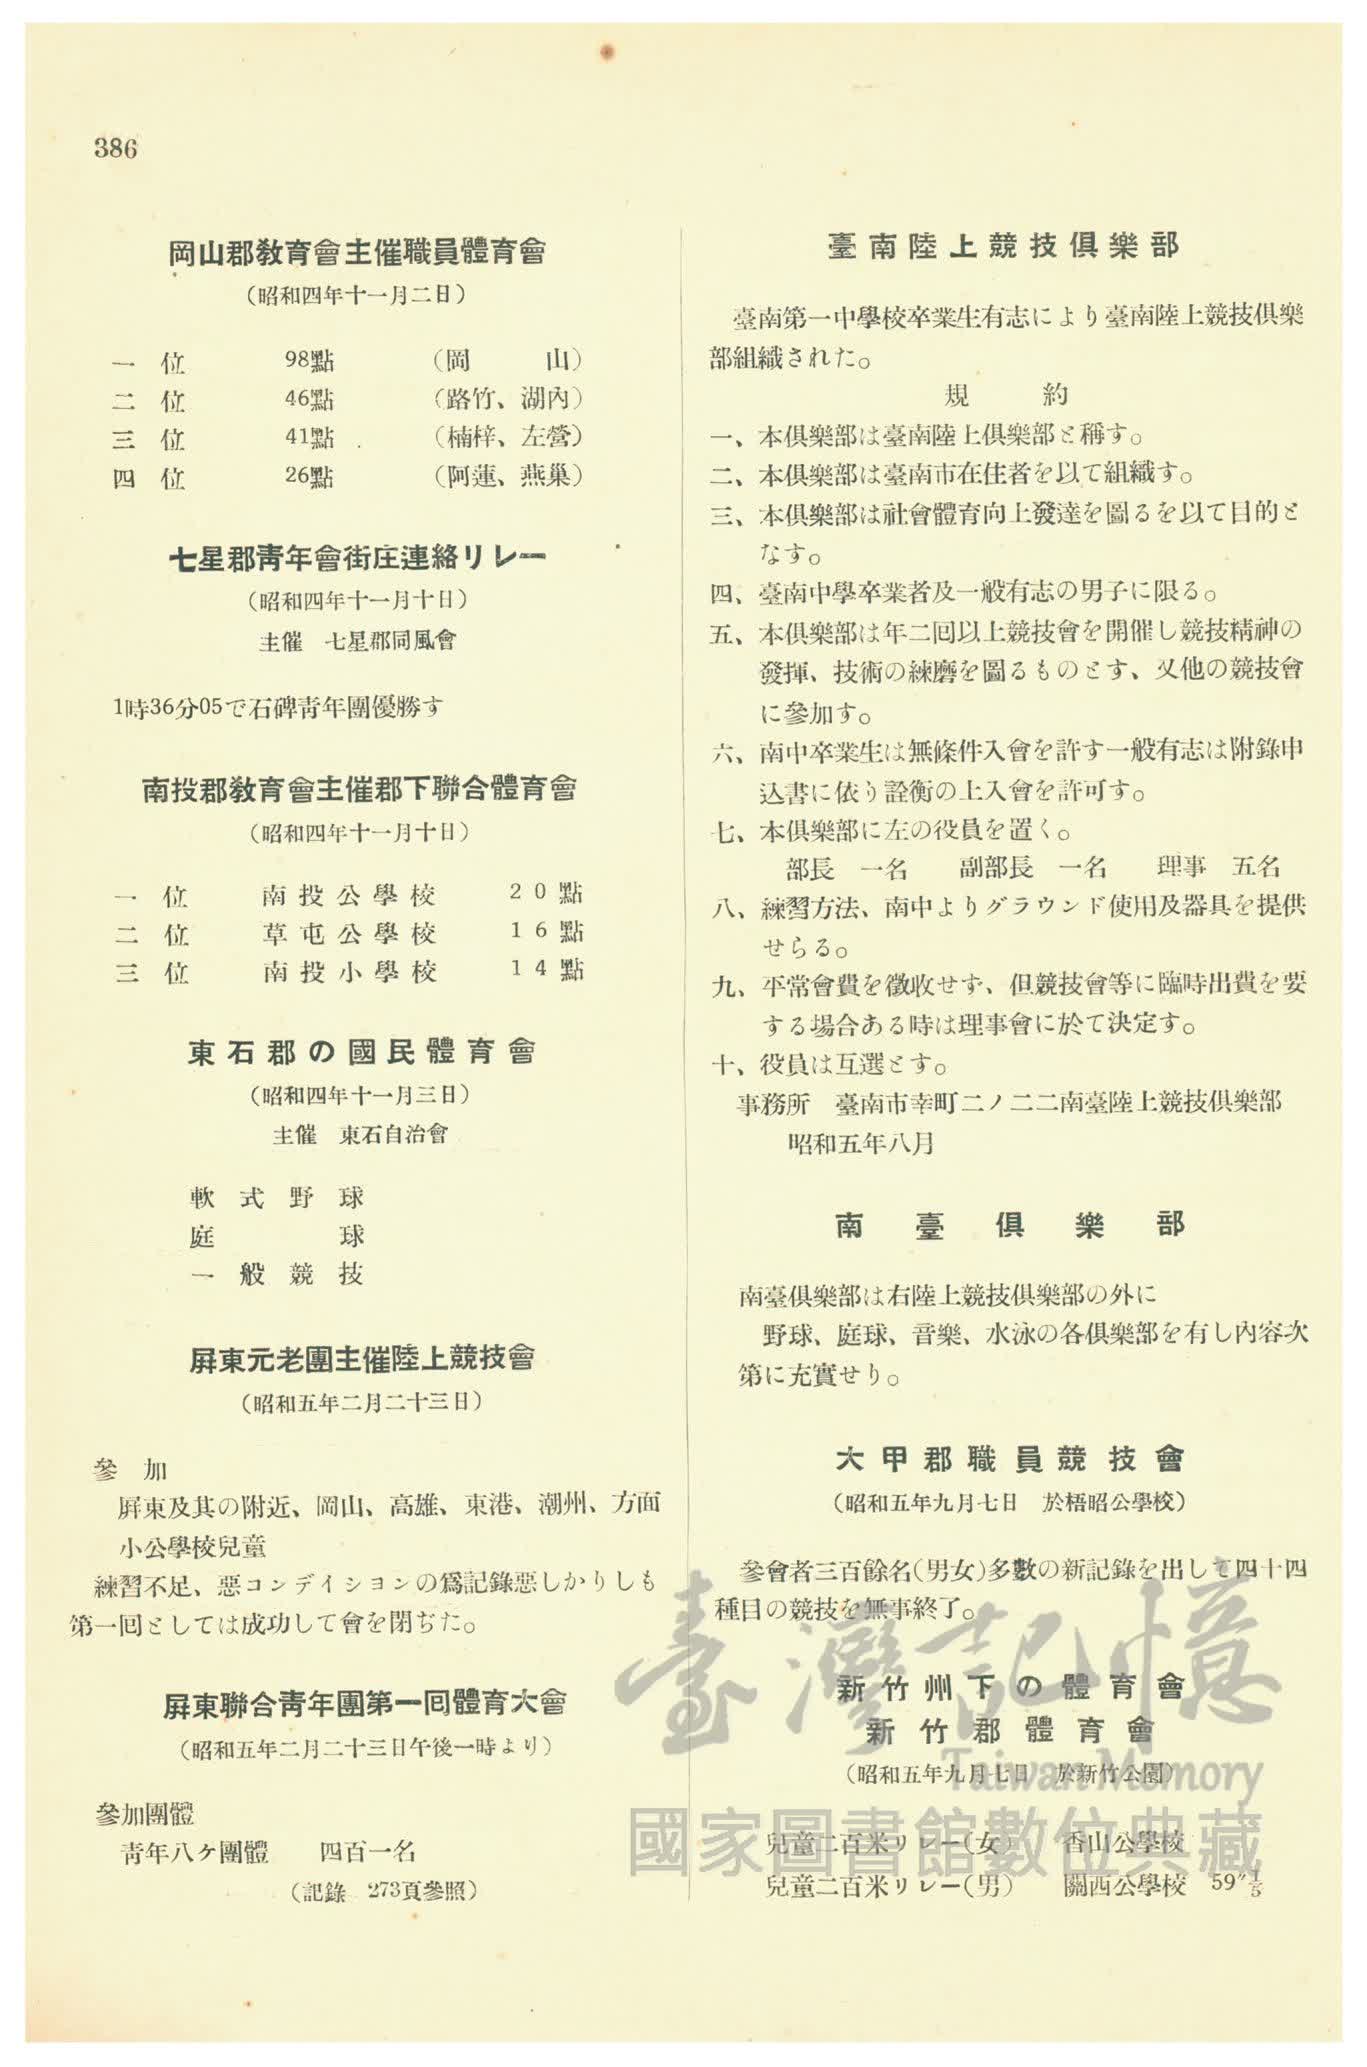 386
岡山郡敎育會主催職員體育會
（昭和四年十一月二日）
一　位　98點　（岡　山）
二　位　46點　（路竹、湖內）
三　位　41點　（楠梓、左營）
四　位　26點　（阿蓮、燕巢）
七星郡靑年會街庄連絡リレー
（昭和四年十一月十日）
主催　七星郡同風會
1時36分05で石碑靑年團優勝す
南投郡敎育會主催郡下聯合體育會
（昭和四年十一月十日）
一　位　南投公學校　20點
二　位　草屯公學校　16點
三　位　南投小學校　14點
東石郡の國民體育會
（昭和四年十一月三日）
主催　東石自治會
軟式野球
庭球
一般競技
屛東元老團主催陸上競技會
（昭和五年二月二十三日）
參　加
屛東及其の附近、岡山、高雄、東港、潮州、方面
小公學校兒童
練習不足、惡コンデイシヨンの爲記錄惡しかりしも
第一囘としては成功して會を閉ぢた。
屛東聯合靑年團第一囘體育大會
（昭和五年二月二十三日午後一時より）
參加團體
靑年八ケ團體　四百一名
（記錄　273頁參照）
臺南陸上競技俱樂部
臺南第一中學校卒業生有志により臺南陸上競技俱樂
部組織された。
規　約
一、本俱樂部は臺南陸上俱樂部と稱す。
二、本俱樂部は臺南市在住者を以て組織す。
三、本俱樂部は社會體育向上發達を圖るを以て目的と
なす。
四、臺南中學卒業者及一般有志の男子に限る。
五、本俱樂部は年二囘以上競技會を開催し競技精神の
發揮、技術の練磨を圖るものとす、又他の競技會
に參加す。
六、南中卒業生は無條件入會を許す一般有志は附錄申
込書に依り詮衡の上入會を許可す。
七、本俱樂部に左の役員を置く。
部長　一名　副部長　一名　理事　五名
八、練習方法、南中よりグラウンド使用及器具を提供
せらる。
九、平常會費を徵收せず、但競技會等に臨時出費を要
する場合ある時は理事會に於て決定す。
十、役員は互選とす。
事務所　臺南市幸町二ノ二二南臺陸上競技俱樂部
昭和五年八月
南臺俱樂部
南臺俱樂部は右陸上競技俱樂部の外に
野球、庭球、音樂、水泳の各俱樂部を有し內容次
第に充實せり。
大甲郡職員競技會
（昭和五年九月七日　於梧昭公學校）
參會者三百餘名（男女）多數の新記錄を出して四十四
種目の競技を無事終了。
新竹州下の體育會
新竹郡體育會
（昭和五年九月七日　於新竹公園）
兒童二百米リレー（女）　香山公學校
兒童二百米リレー（男）　關西公學校　59″1/5
臺灣記憶
Taiwan Memory
國家圖書館數位典藏